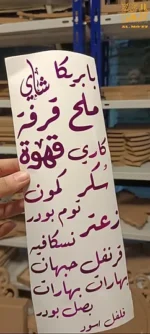 بابريكا شاي
ملح قرفة
كاري قهوة
سكر كمون
ثوم بودر
زعتر نسكافيه
قرنفل حبهان
بهارات بهارات
بصل بودر
فلفل اسود